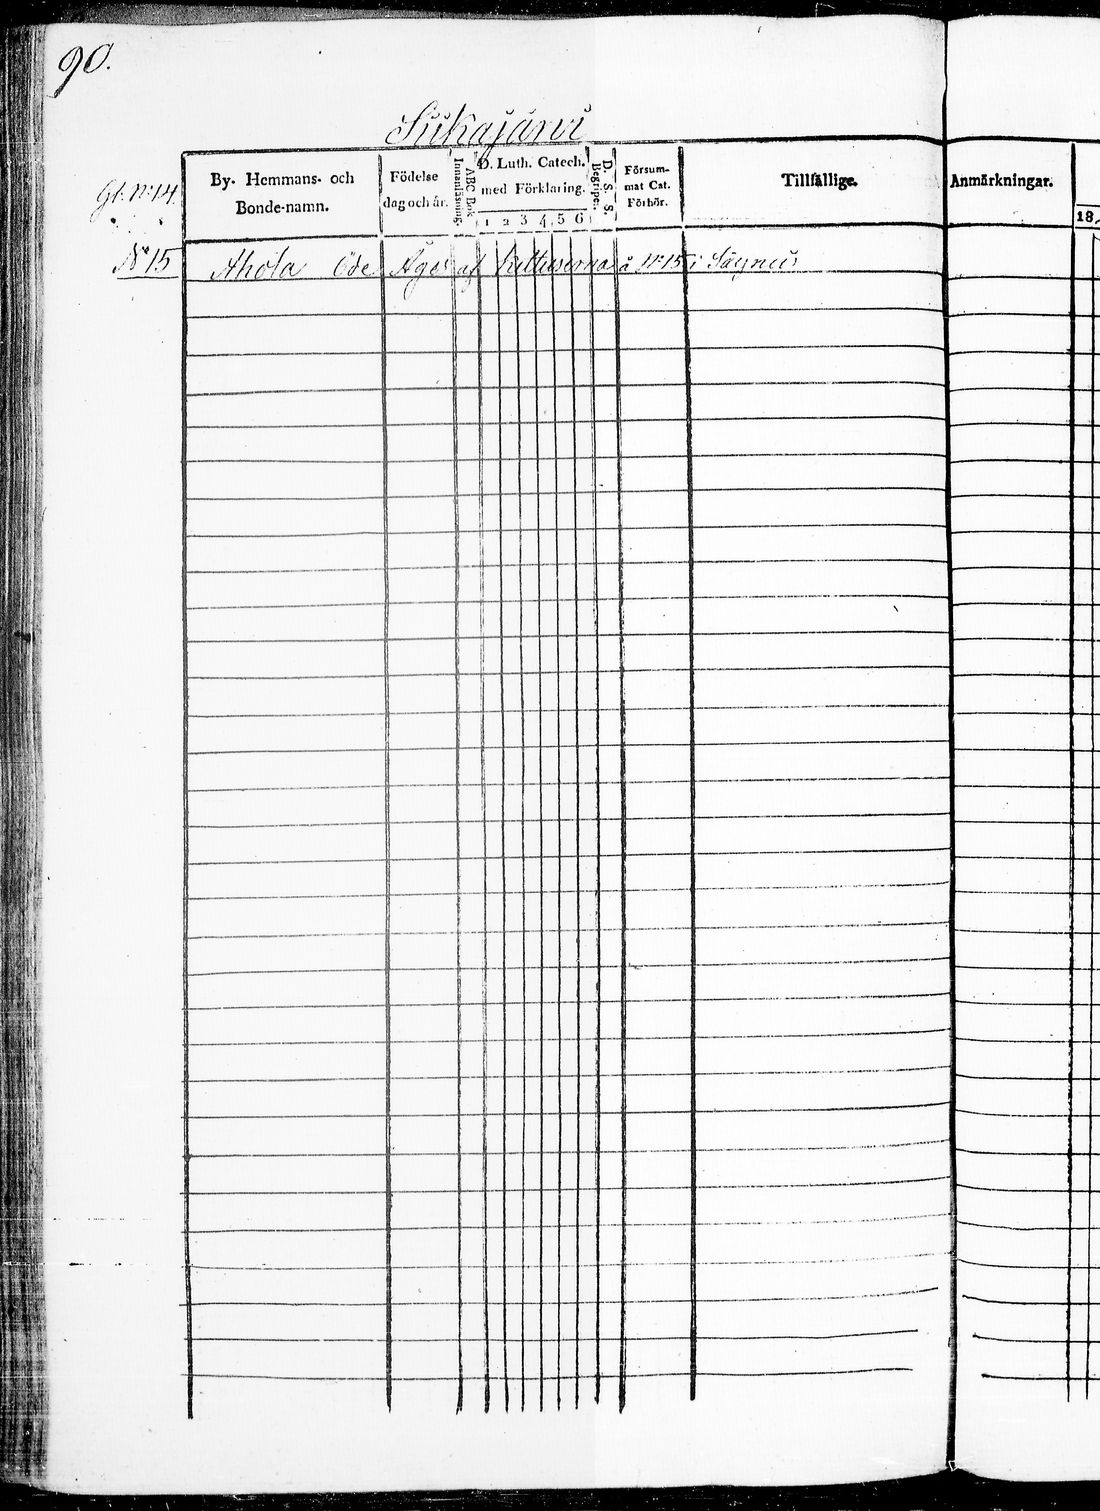 90.
Siikajärvi
By- Hemmans- och Bonde-namn.
Födelse dag och år.
Innanläsning.
ABC Bok
D. Luth. Catech. med Förklaring.
1 2 3 4 5 6
Begripe.
D. S. S.
Försummat Cat. Förhör.
Tillfällige.
Anmärkningar.
18
Gl. No 14.
No 15 Ahola Öde Äges af å No 15 i